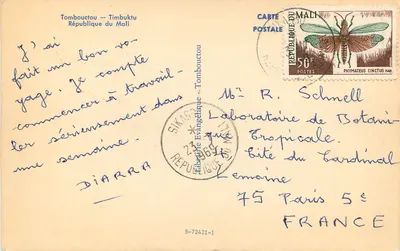 Tombouctou — Timbuktu
République du Mali
CARTE
POSTALE
J'ai
fait un bon vo-
yage. Je compte
commencer à travail-
ler sérieusement dans
une semaine.
DIARRA
Librairie Evangélique - Tombouctou
SIKASSO
23
1969
REPUBLIQUE DU MALI
REPUBLIQUE DU MALI
50F
POSTES
PHYMATEUS CINCTUS
Mr R. Schnell
Laboratoire de Botani-
que Tropicale.
Cité du Cardinal
Lemoine
75 PARIS 5e
FRANCE
B-72421-1